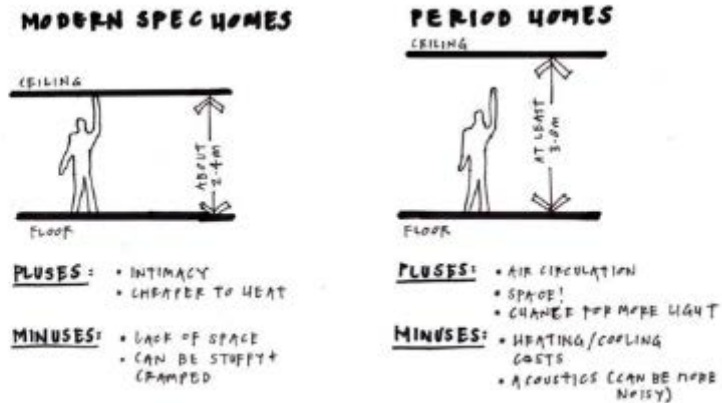 MODERN SPEC HOMES
CEILING
ABOUT
2.4M
FLOOR
PLUSES:
• INTIMACY
• CHEAPER TO HEAT
MINUSES:
• LACK OF SPACE
• CAN BE STUFFY +
CRAMPED
PERIOD HOMES
CEILING
AT LEAST
3.0M
FLOOR
PLUSES:
• AIR CIRCULATION
• SPACE!
• CHANCE FOR MORE LIGHT
MINUSES:
• HEATING/COOLING
COSTS
• ACOUSTICS (CAN BE MORE
NOISY)